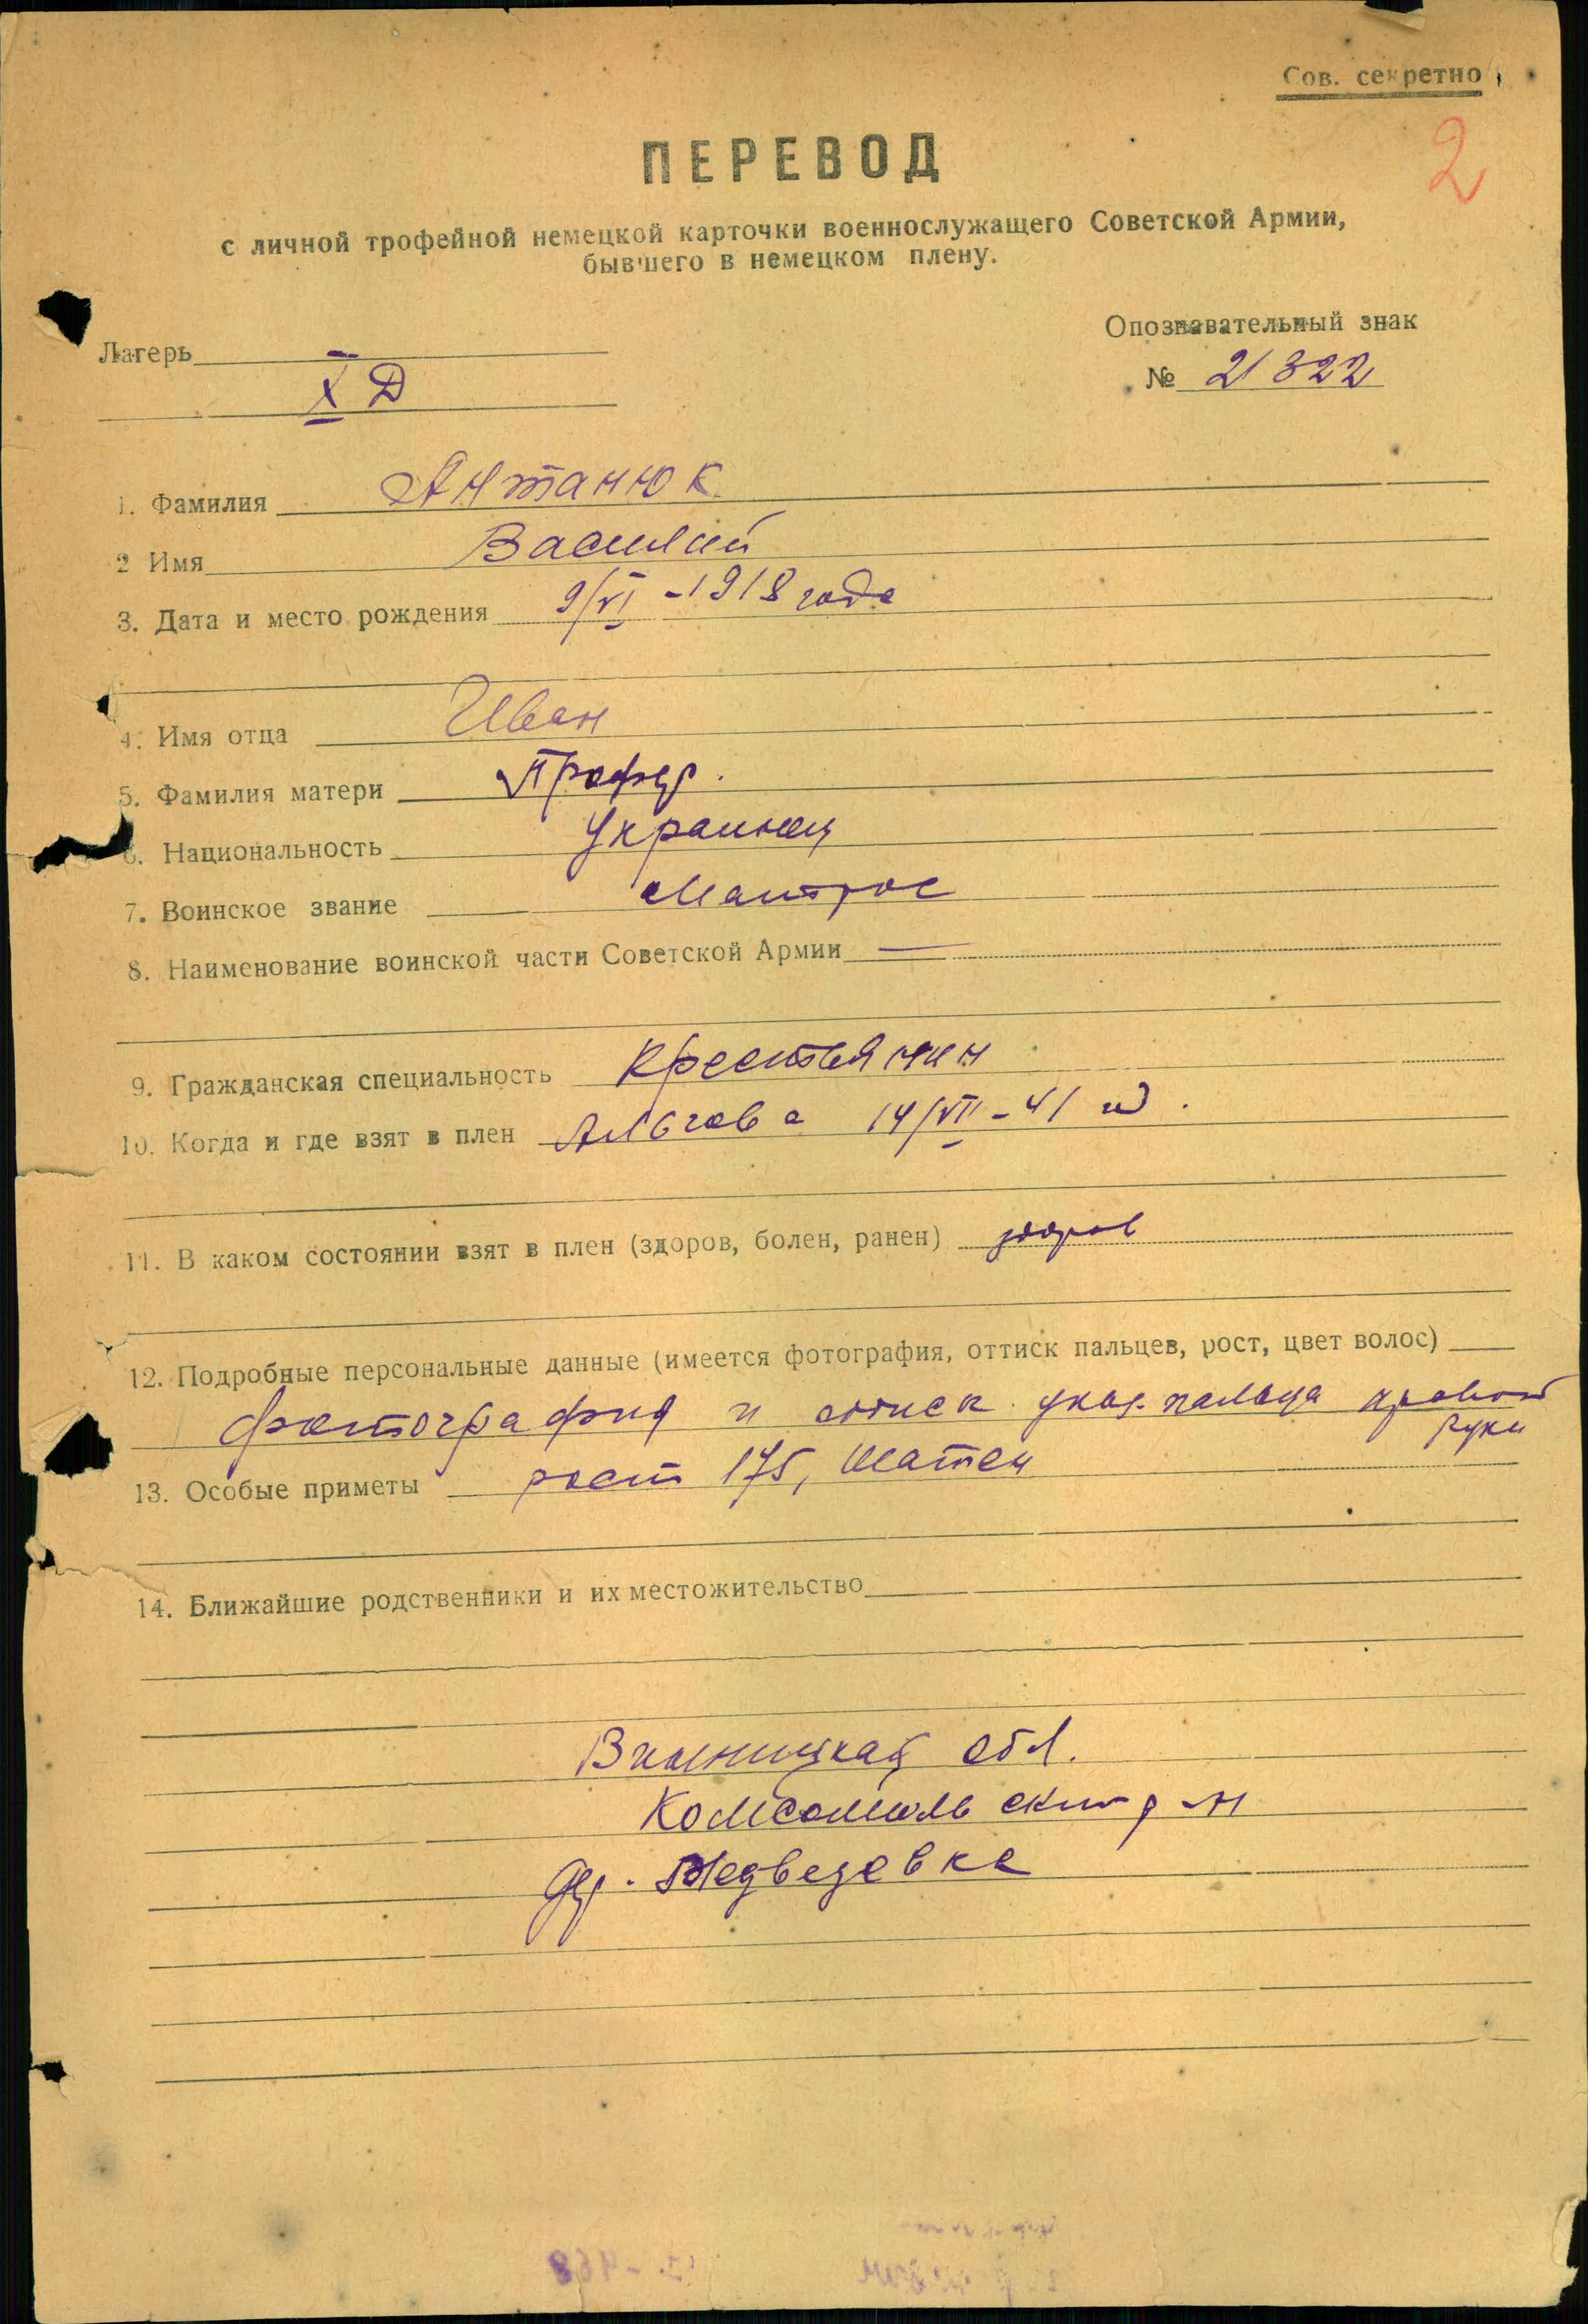 Сов. секретно
2
ПЕРЕВОД
с личной трофейной немецкой карточки военнослужащего Советской Армии,
бывшего в немецком плену.
Опознавательный знак
Лагерь
X Д
№ 21322
1. Фамилия Антанюк
2 Имя Василий
3. Дата и место рождения 9/VI - 1918 года
4. Имя отца Иван
5. Фамилия матери
6. Национальность Украинец
7. Воинское звание Матрос
8. Наименование воинской части Советской Армии —
9. Гражданская специальность Крестьянин
10. Когда и где взят в плен Альгава 14/VII - 41
11. В каком состоянии взят в плен (здоров, болен, ранен) здоров
12. Подробные персональные данные (имеется фотография, оттиск пальцев, рост, цвет волос)
фотография и оттиск указ. пальца правой
руки
13. Особые приметы рост 175, Шатен
14. Ближайшие родственники и их местожительство
Винницкая обл.
Комсомольский р-н
дер. Медведевка